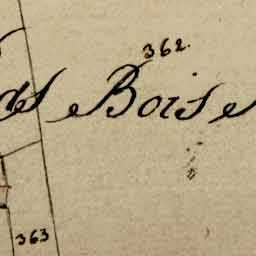 362.
ds Bois
363